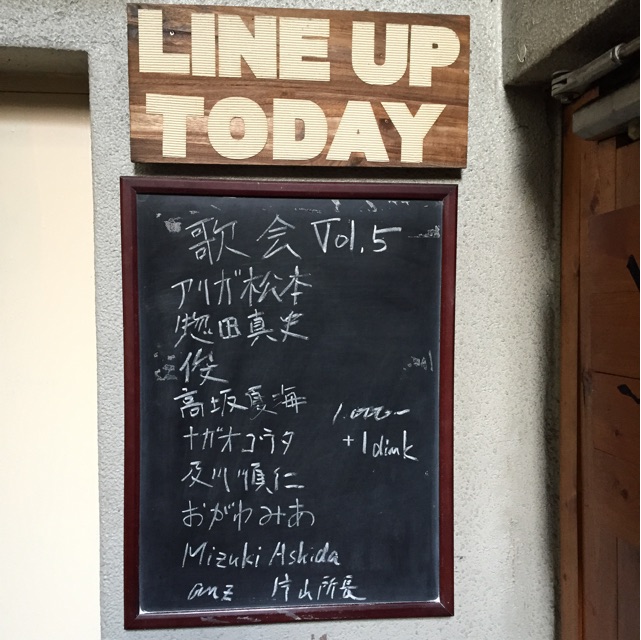 LINE UP
TODAY
歌会 Vol.5
アリガ松本
惣田真史
俊
高坂夏海
ナガオコウタ
1,000-
+1 dink
及川慎仁
おがわみあ
Mizuki Ashida
anz 片山所長